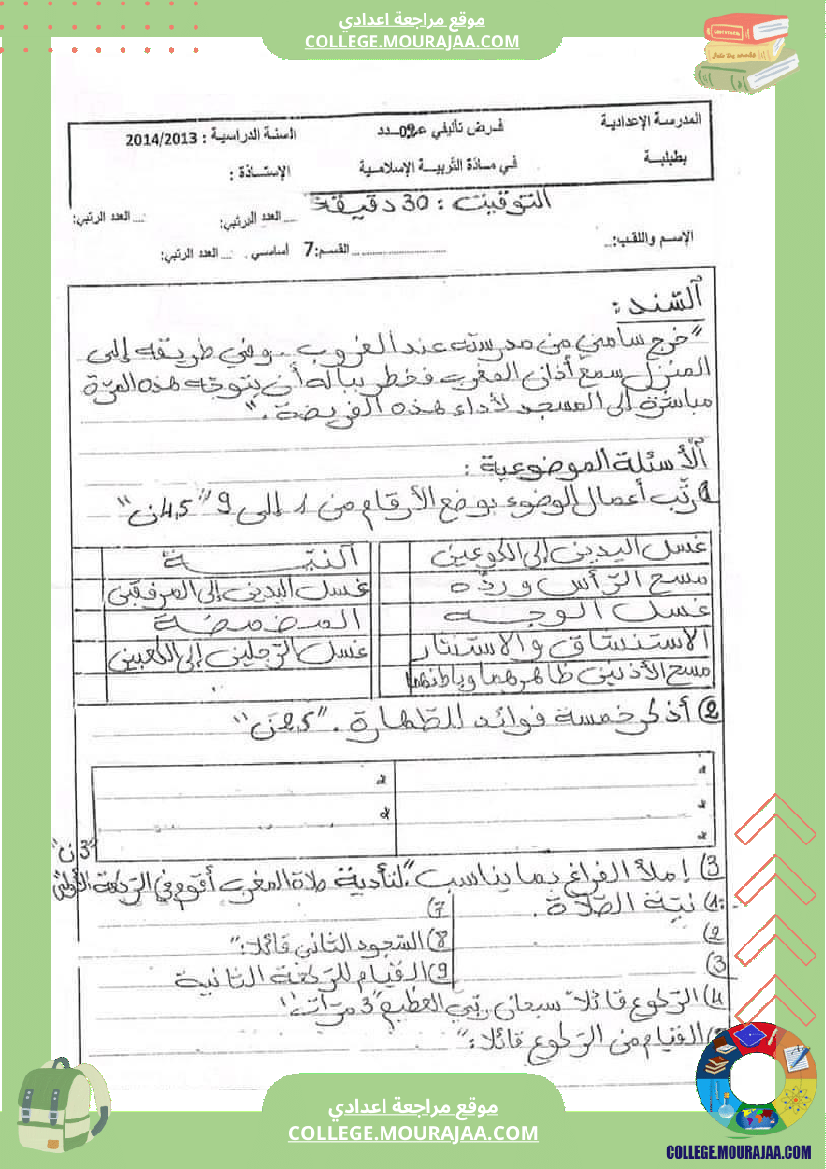 موقع مراجعة اعدادي
COLLEGE.MOURAJAA.COM
المدرسة الإعدادية
بطبلبة
فرض تأليفي عـ02ـدد
في مادة التربية الإسلامية
السنة الدراسية : 2014/2013
الإستاذة :
التوقيت : 30 دقيقة
العدد الرتبي:
العدد الرتبي:
الإسم واللقب:
القسم: 7 أساسي
العدد الرتبي:
السّند :
"خرج سامي من مدرسته عند الغروب .. وفي طريقه إلى
المنزل سمع أذان المغرب فخطر بباله أن يتوجّه هذه المرّة
مباشرة إلى المسجد لأداء هذه الفريضة."
الأسئلة الموضوعية :
1) رتّب أعمال الوضوء بوضع الأرقام من 1 إلى 9 "4,5ن"
غسل اليدين إلى الكوعين
النيّـة
مسح الرّأس وردّه
غسل اليدين إلى المرفقين
غسل الوجه
المضمضة
الاستنشاق والاستنثار
غسل الرّجلين إلى الكعبين
مسح الأذنين ظاهرهما وباطنهما
2) أذكر خمسة فوائد للطّهارة . "2,5ن"
3) إملأ الفراغ بما يناسب "لتأدية صلاة المغرب أقوم في الرّكعة الأولى "3ن"
1) نيّة الصّلاة.
7)
2)
8) السّجود الثاني قائلا:"
3)
9) القيام للرّكعة الثانية
4) الرّكوع قائلا "سبحان ربّي العظيم" 3 مرّات
القيام من الرّكوع قائلا:"
موقع مراجعة اعدادي
COLLEGE.MOURAJAA.COM
COLLEGE.MOURAJAA.COM